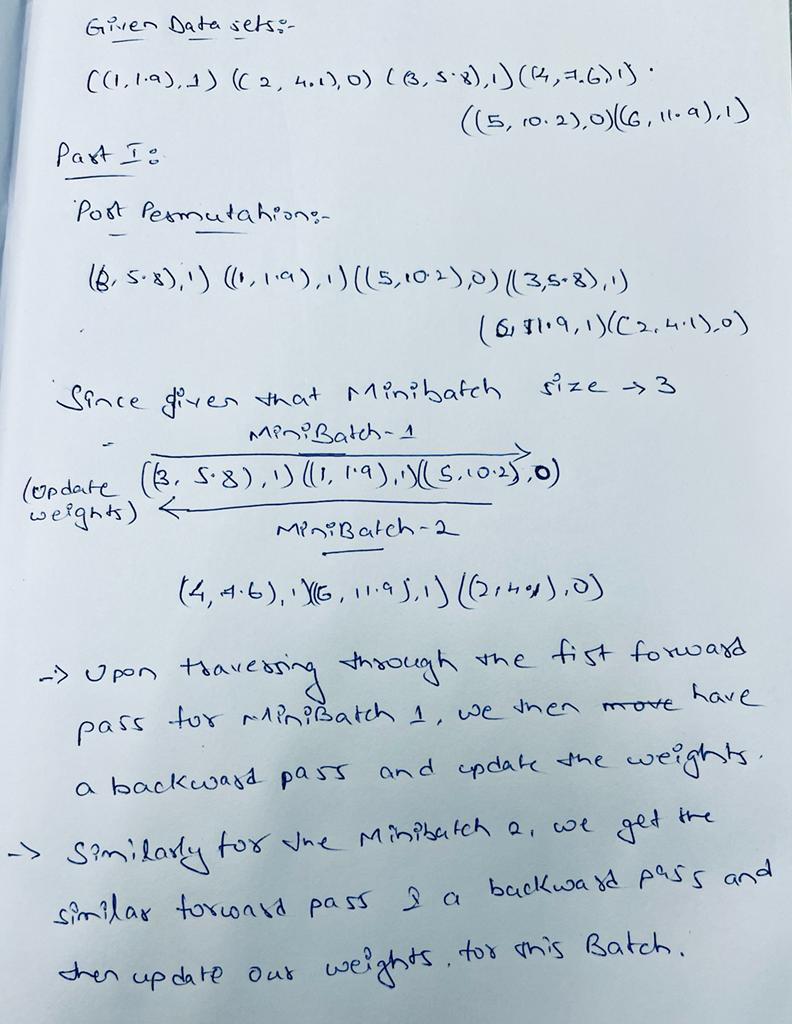 Given Data sets:-
((1,1.9),1) ((2,4.1),0) (3,5.8),1) ((4,7.6),1).
((5,10.2),0)((6,11.9),1)
Part I:
Post Permutation:-
(3,5.8),1) ((1,1.9),1) ((5,10.2),0) ((3,5.8),1)
(6,11.9,1)((2,4.1),0)
Since given that Minibatch size → 3
MiniBatch-1
(update weights) ((3,5.8),1) ((1,1.9),1)((5,10.2),0)
MiniBatch-2
(4,7.6),1)(6,11.9),1) ((2,4.1),0)
-> Upon traversing through the fist forward
pass for MiniBatch 1, we then move have
a backward pass and update the weights.
-> Similarly for the Minibatch 2, we get the
similar forward pass & a backward pass and
then update our weights, for this Batch.